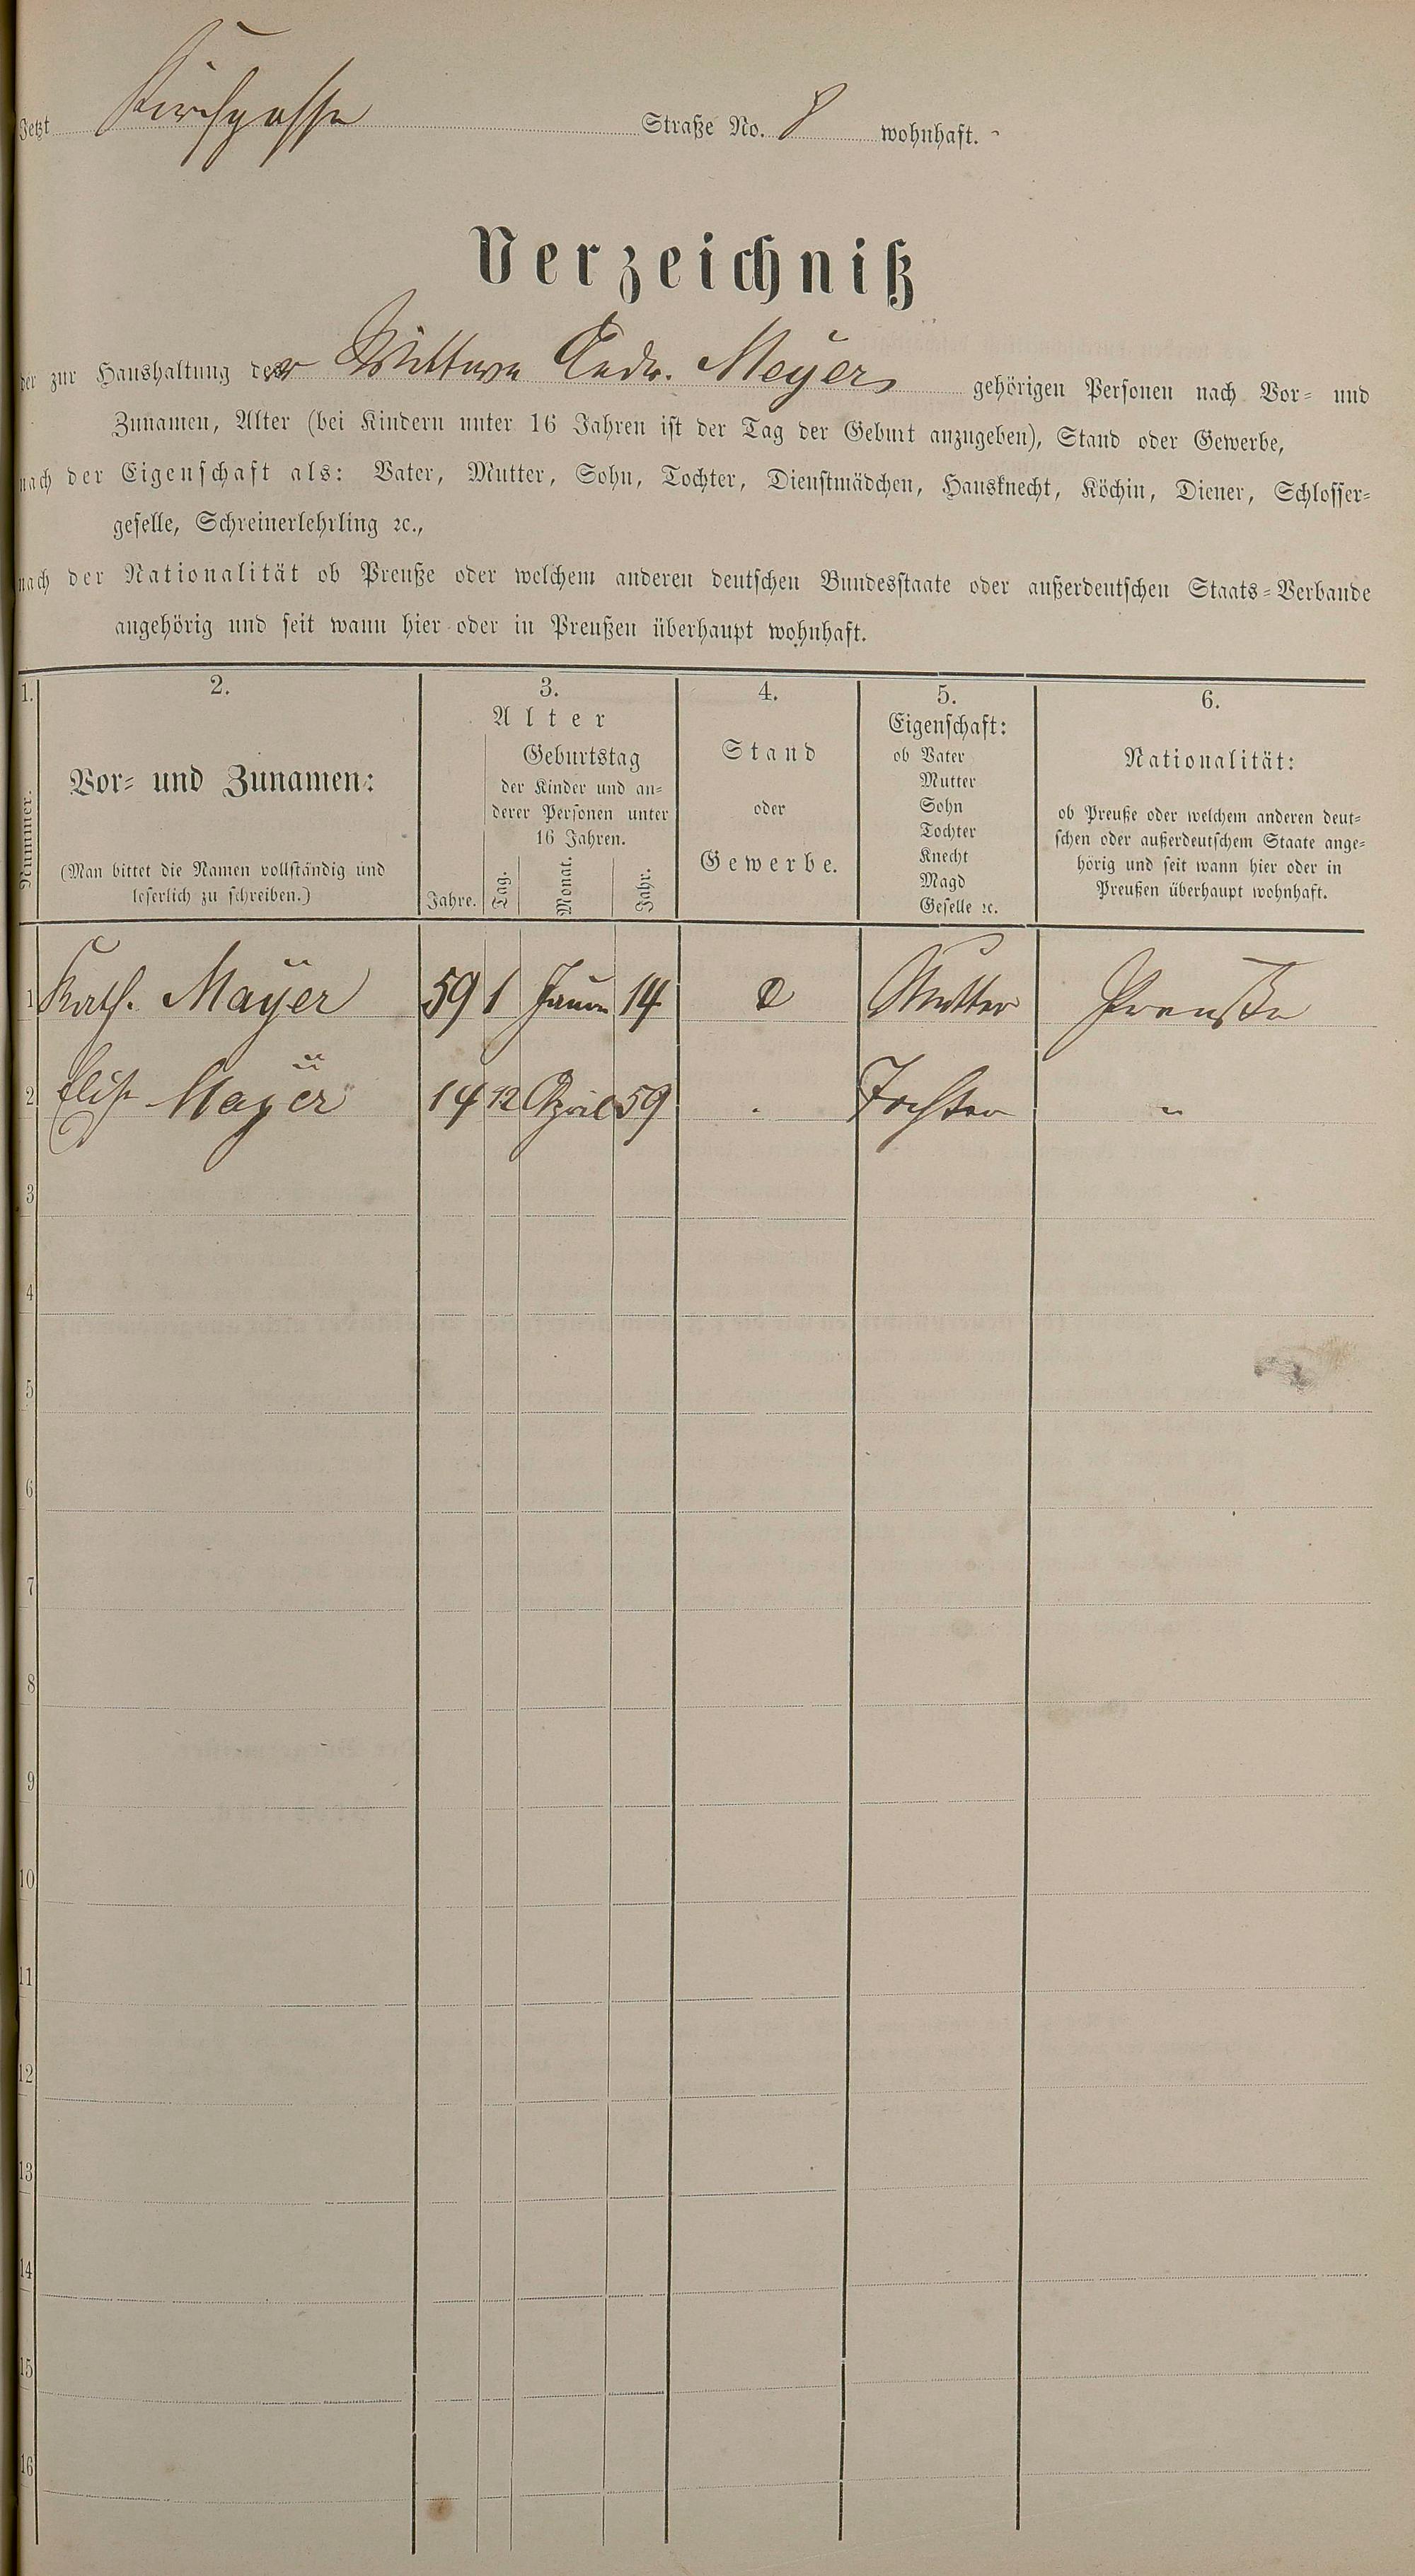 Jetzt Kirchgasse Straße No. 8 wohnhaft.
Verzeichniß
der zur Haushaltung der Wittwe Andr. Meyer gehörigen Personen nach Vor- und
Zunamen, Alter (bei Kindern unter 16 Jahren ist der Tag der Geburt anzugeben), Stand oder Gewerbe,
nach der Eigenschaft als: Vater, Mutter, Sohn, Tochter, Dienstmädchen, Hausknecht, Köchin, Diener, Schlosser-
geselle, Schreinerlehrling ꝛc.,
nach der Nationalität ob Preuße oder welchem anderen deutschen Bundesstaate oder außerdeutschen Staats-Verbande
angehörig und seit wann hier oder in Preußen überhaupt wohnhaft.
1. 2. 3. 4. 5. 6.
Nummer.
Vor- und Zunamen:
(Man bittet die Namen vollständig und
leserlich zu schreiben.)
Alter
Geburtstag
der Kinder und an-
derer Personen unter
16 Jahren.
Jahre. Tag. Monat. Jahr.
Stand
oder
Gewerbe.
Eigenschaft:
ob Vater
Mutter
Sohn
Tochter
Knecht
Magd
Geselle ꝛc.
Nationalität:
ob Preuße oder welchem anderen deut-
schen oder außerdeutschem Staate ange-
hörig und seit wann hier oder in
Preußen überhaupt wohnhaft.
1 Kath. Mayer 59 1 14 Mutter Preuße
2 Elise Mayer 14 12 April 59 Tochter "
3
4
5
6
7
8
9
10
11
12
13
14
15
16